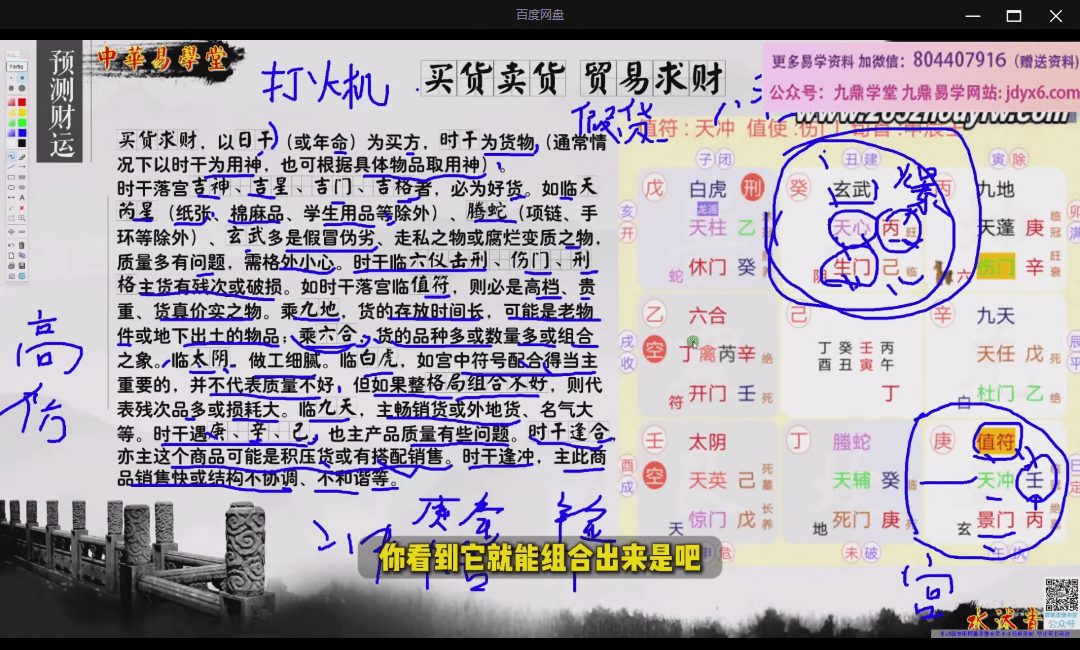 百度网盘
更多易学资料 加微信：804407916（赠送资料）
公众号：九鼎学堂 九鼎易学网站：jdyx6.com
中華易學堂
预测财运
打火机
买货卖货 贸易求财
假货
值符：天冲 值使：伤门
买货求财，以日干（或年命）为买方，时干为货物（通常情
况下以时干为用神，也可根据具体物品取用神）。
时干落宫吉神、吉星、吉门、吉格者，必为好货。如临天
芮星（纸张、棉麻品、学生用品等除外）、腾蛇（项链、手
环等除外）、玄武多是假冒伪劣、走私之物或腐烂变质之物，
质量多有问题，需格外小心。时干临六仪击刑、伤门、刑
格主货有残次或破损。如时干落宫临值符，则必是高档、贵
重、货真价实之物。乘九地，货的存放时间长，可能是老物
件或地下出土的物品，乘六合，货的品种多或数量多或组合
之象。临太阴，做工细腻。临白虎，如宫中符号配合得当主
重要的，并不代表质量不好，但如果整格局组合不好，则代
表残次品多或损耗大。临九天，主畅销货或外地货、名气大
等。时干遇庚、辛、己，也主产品质量有些问题。时干逢合
亦主这个商品可能是积压货或有搭配销售。时干逢冲，主此商
品销售快或结构不协调、不和谐等。
高仿
子闭 丑建 寅除
戊 白虎 刑 癸 玄武 丙 九地
天柱 乙 天心 丙 旺 天蓬 庚
亥开
蛇 休门 癸 阴 生门 己 临 六 伤门 辛
乙 六合 己 辛 九天
空 丁 禽 芮 辛 绝 丁 癸 壬 丙 天任 戊 死
酉 丑 寅 午
戌收
符 开门 壬 死 丁 白 杜门 乙 绝
壬 太阴 丁 螣蛇 庚 值符
空 天英 己 天辅 癸 天冲 壬
酉成
天 惊门 戊 地 死门 庚 玄 景门 丙
未破
宫
你看到它就能组合出来是吧
公众号